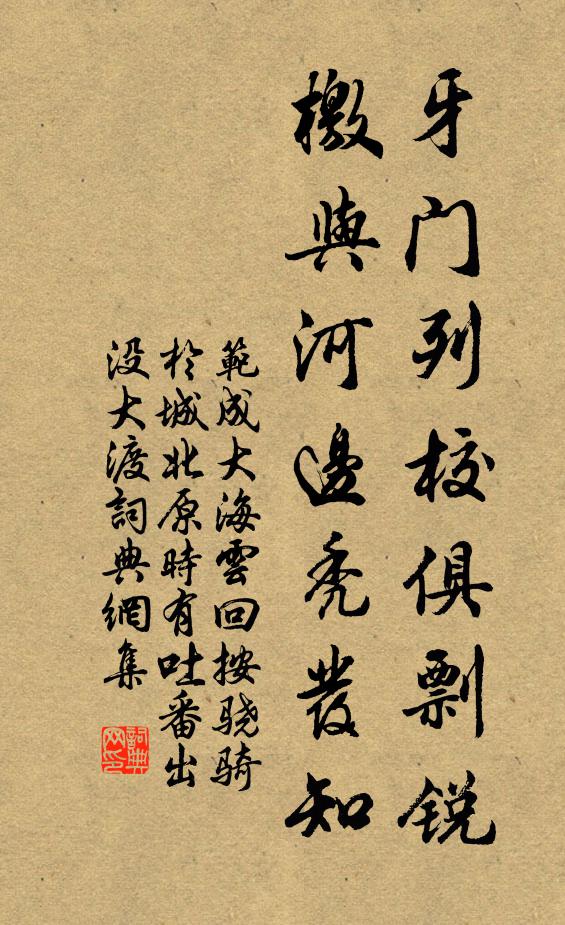 牙门列校俱剽锐
檄与河边秃发知
範成大海雲回按骁骑
於城北原時有吐番出
没大渡詞典網集
詞典网印